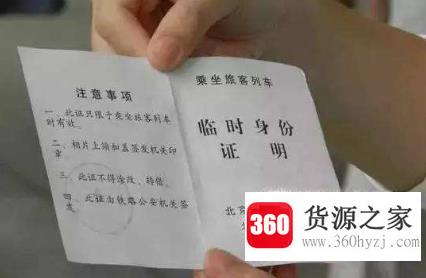 注意事项
一、此证只限于乘坐旅客列车
时有效。
二、相片上须加盖签发机关印
章
三、此证不得涂改、转借。
四、此证由铁路公安机关签
发
乘坐旅客列车
临时身份
证明
北京
360
货源之家
www.360hyzj.com